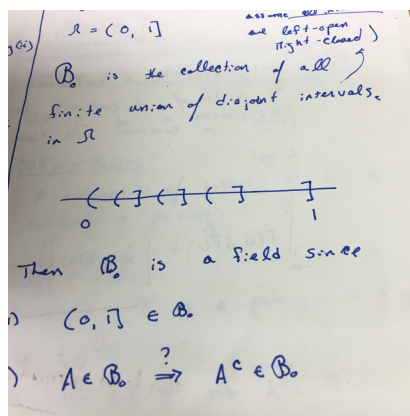 assume
Ω = (0, 1]
are left-open
(ii)
right-closed)
B₀ is the collection of all
finite union of disjoint intervals.
in Ω
( ( ] ( ] ( ] ]
0 1
Then B₀ is a field since
i) (0, 1] ∈ B₀
) A ∈ B₀ ?⇒ Aᶜ ∈ B₀